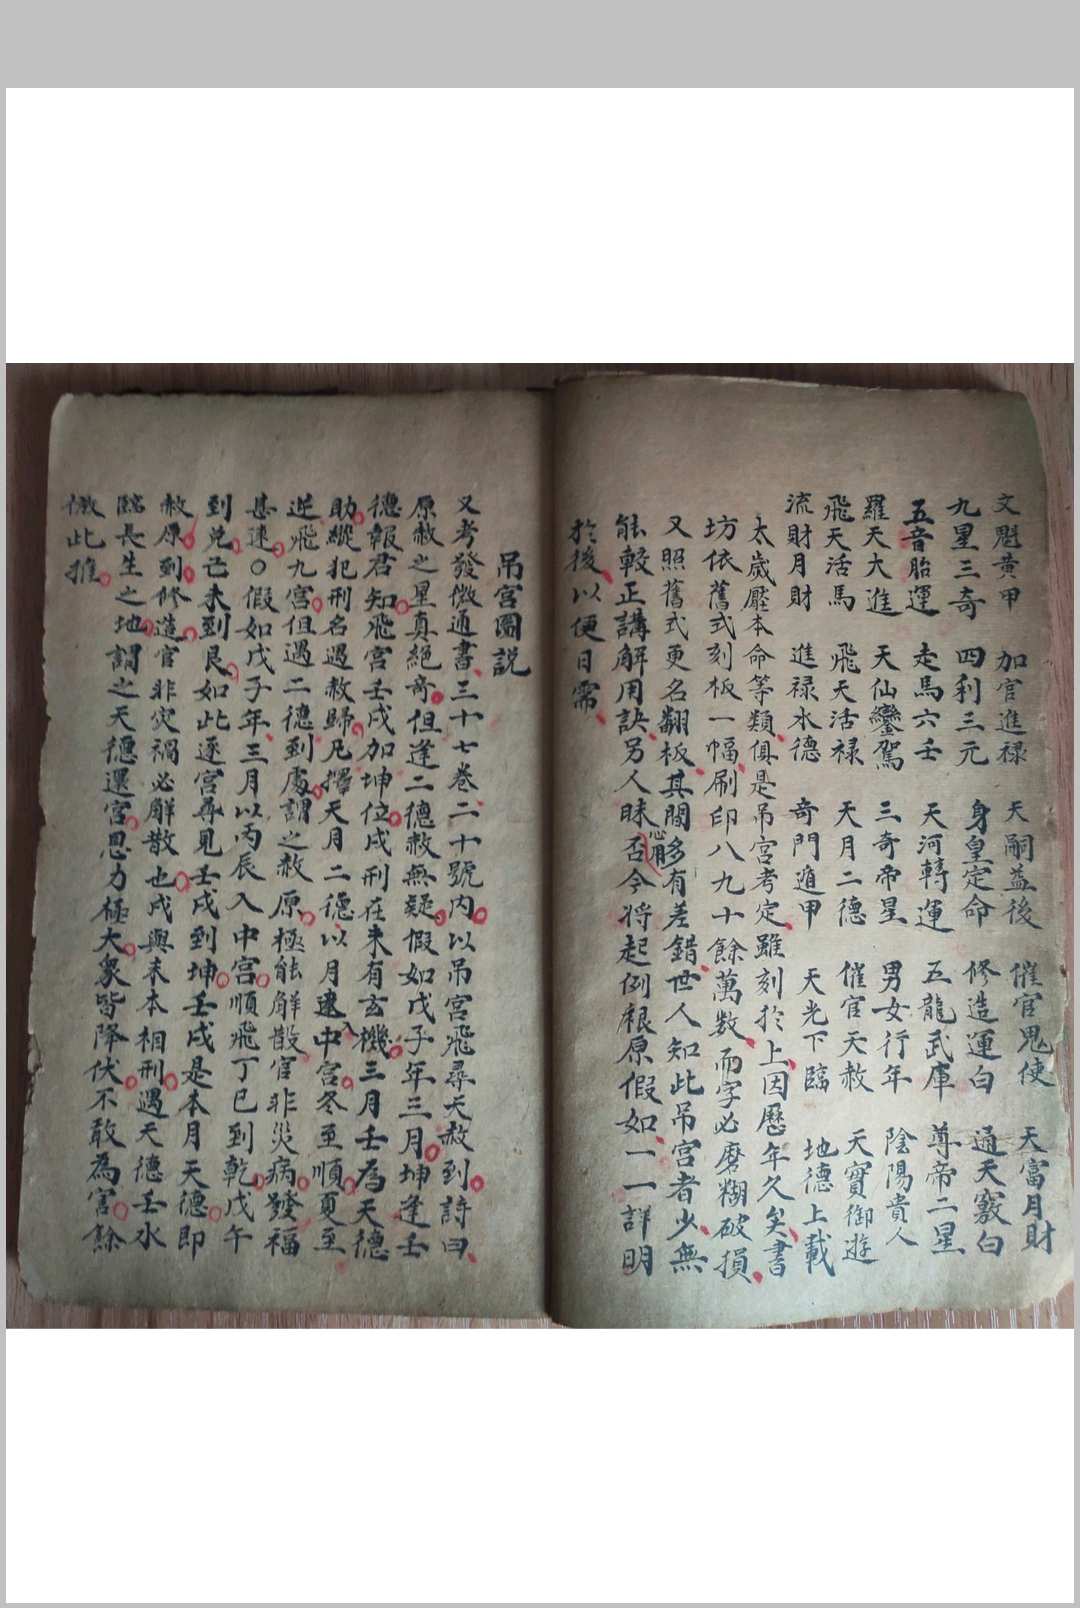 文魁黄甲　加官進禄　天嗣益後　催官鬼使　天富月財
九星三奇　四利三元　身皇定命　修造運白　通天竅白
五音胎運　走馬六壬　天河轉運　五龍武庫　尊帝二星
羅天大進　天仙鑾駕　三奇帝星　男女行年　陰陽貴人
飛天活馬　飛天活禄　天月二德　催官天赦　天寶御遊
流財月財　進禄水德　奇門遁甲　天光下臨　地德上載
太歲壓本命等類俱是吊宫考定雖刻於上因歷年久矣書
坊依舊式刻板一幅刷印八九十餘萬數而字必磨糊破損
又照舊式更名翻板其間多有差錯世人知此吊宫者少無
能較正講解用訣另人昧心用否今将起例根原假如一一詳明
於後以便日需
吊宫圖説
又考發微通書三十七卷二十號内以吊宫飛尋天赦到詩曰
原赦之星真絕奇但逢二德赦無疑假如戊子年三月坤逢壬
德報君知飛宫壬戌加坤位戌刑在未有玄機三月壬為天德
助縱犯刑名遇赦歸凡擇天月二德以月建入中宫冬至順夏至
逆飛九宫但遇二德到處謂之赦原極能解散官非災病發福
甚速○假如戊子年三月以丙辰入中宫順飛丁巳到乾戊午
到兑己未到艮如此逐宫尋見壬戌到坤壬戌是本月天德即
赦原到修造官非灾禍必解散也戌與未本相刑遇天德壬水
臨長生之地謂之天德還宫恩力極大衆皆降伏不敢為害餘
倣此推